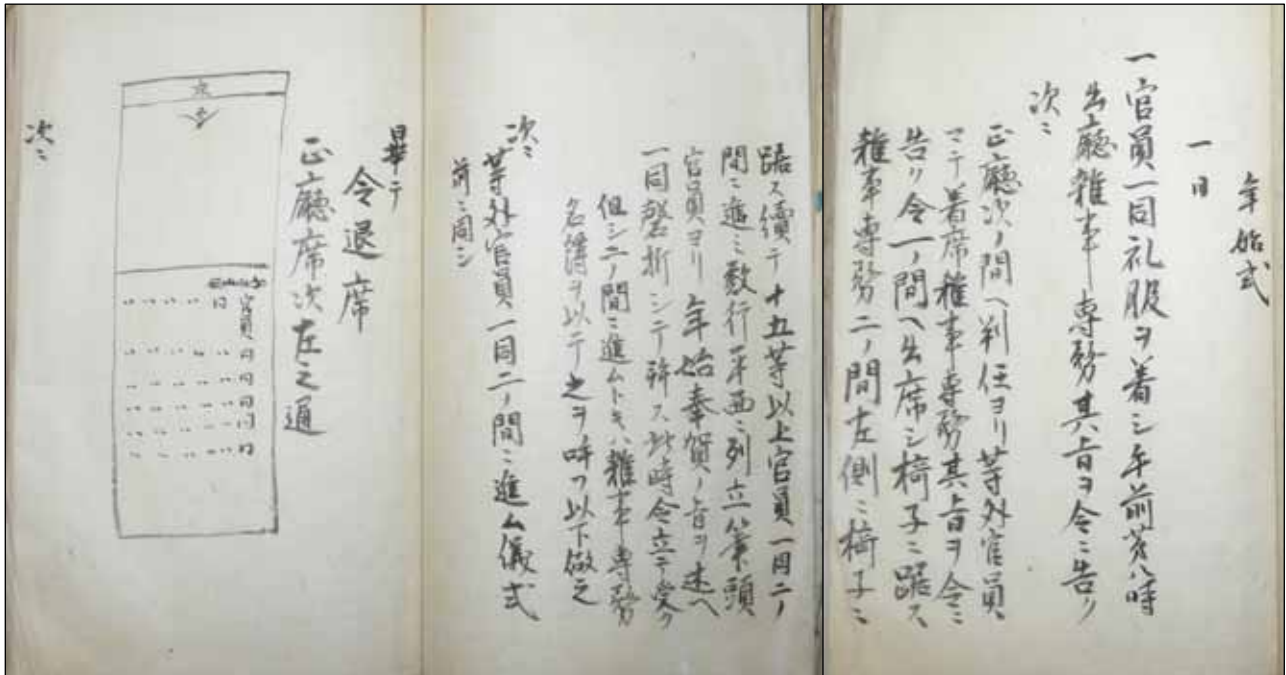 年始式
一日
一官員一同礼服ヲ着シ午前第八時
出廳雑事専務其旨ヲ令ニ告ク
次ニ
正廳次ノ間ヘ判任ヨリ等外官員
マテ着席雑事専務其旨ヲ令ニ
告リ令一ノ間ヘ出席シ椅子ニ踞ス
雑事専務二ノ間左側ニ椅子ニ
踞ス續テ十五等以上官員一同二ノ
間ニ進ミ数行平面ニ列立筆頭
官員ヨリ年始奉賀ノ旨ヲ述ヘ
一同磬折シテ拜ス此時令立テ受ク
但シ二ノ間ニ進ムトキハ雑事専務
名簿ヲ以テ之ヲ呼フ以下倣之
次ニ
等外官員一同二ノ間ニ進ム儀式
前ニ同シ
畢テ
令退席
正廳席次左之通
令
官員 同 同 同 同 同
同
次ニ